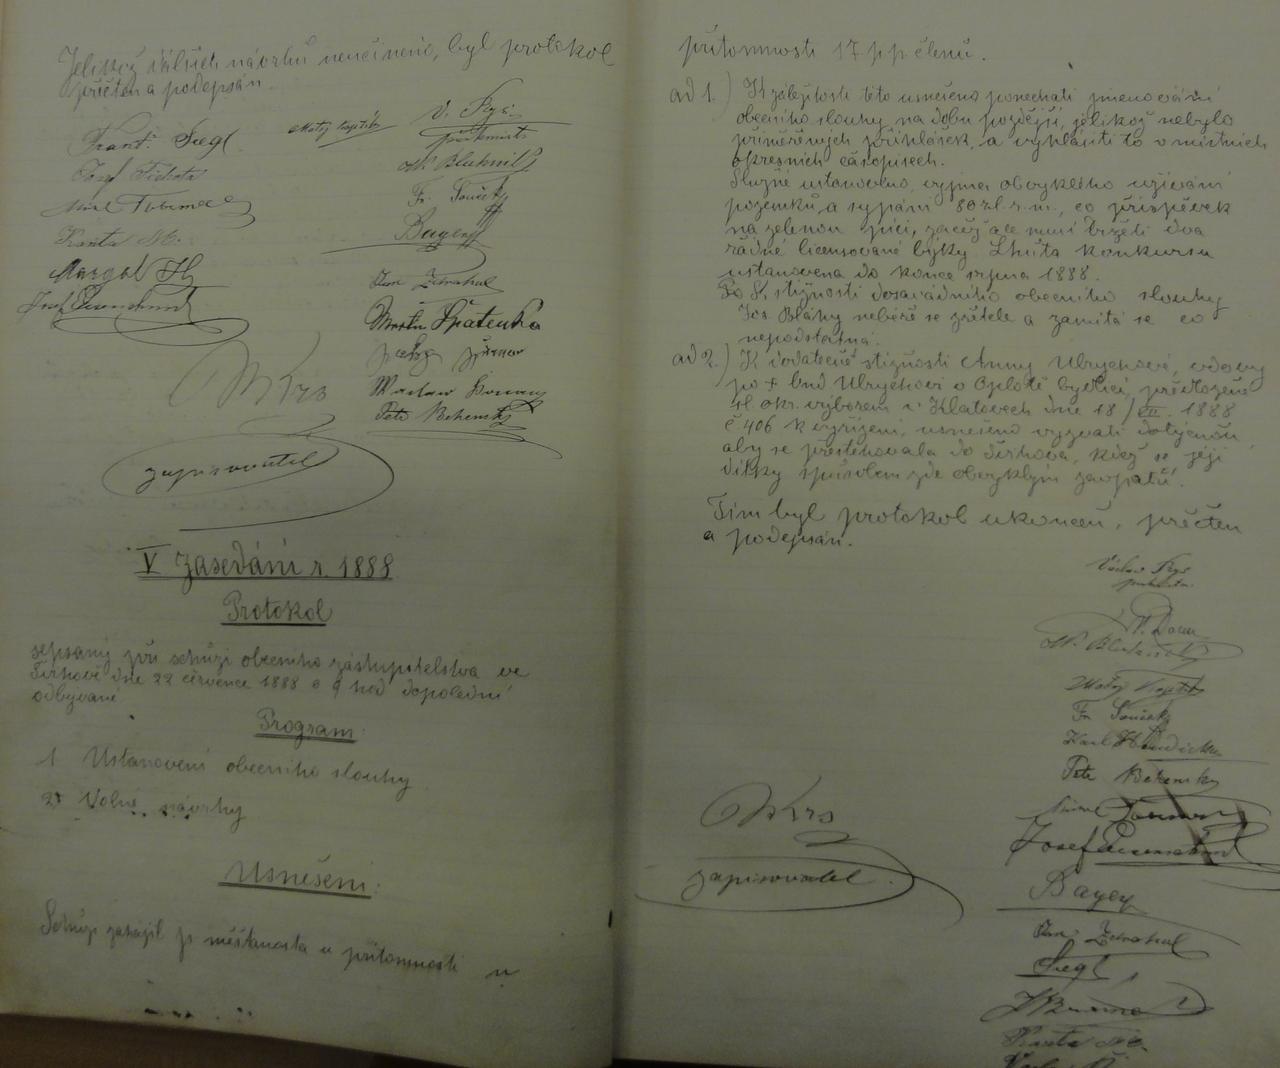 Jelikož dalších návrhů neučiněno, byl protokol
přečten a podepsán.
Frant. Siegl
Josef
Kanta M.
Margal
Josef
Krs
zapisovatel
Matěj
V. Rys
purkmistr
Fr. Souček
Bayer
Jan Zdrahal
Martin Špatenka
Petr Bekensky
V Zasedání r. 1888
Protokol
sepsaný při schůzi obecního zástupitelstva ve
dne 22 července 1888 o 9 hod dopolední
odbývané
Program:
1 Ustanovení obecního slouhy
2) Volné návrhy
Usnešení:
Schůzi zahájil p. měšťanosta u přítomnosti u
přítomnosti 17 pp členů.
ad 1.) K záležitosti této usnešeno ponechati jmenování
obecního slouhy na dobu pozdější, jelikož nebylo
přiměřených přihlášek, a vyhlásiti to v místních
okresních časopisech.
Služné ustanoveno, vyjma obvyklého užívání
pozemků a sypání 80 zl. r. m., co příspěvek
na zelenou píci, začež ale musí držeti dva
řádné licensované býky. Lhůta konkursu
ustanovena do konce srpna 1888.
stížnosti dosavádního obecního slouhy
Jos. Bláhy nebéře se zřetele a zamítá se co
nepodstatná.
ad 2.) K dodatečné stížnosti Anny Ulrychové, vdovy
po † Ulrychovi v Oplotě bydlící, předložené
sl. okr. výborem v Klatovech dne 18/VII. 1888
č 406 k vyřízení, usnešeno vyzvati dotyčnou
aby se přestěhovala do, kdež se její
dítky způsobem zde obvyklým zaopatří.
Tím byl protokol ukončen, přečten
a podepsán.
Václav Rys
purkmistr
Matěj
Fr. Souček
Karl
Petr Bekensky
Josef
Bayer
Jan Zdrahal
Siegl
Kanta M.
Krs
zapisovatel